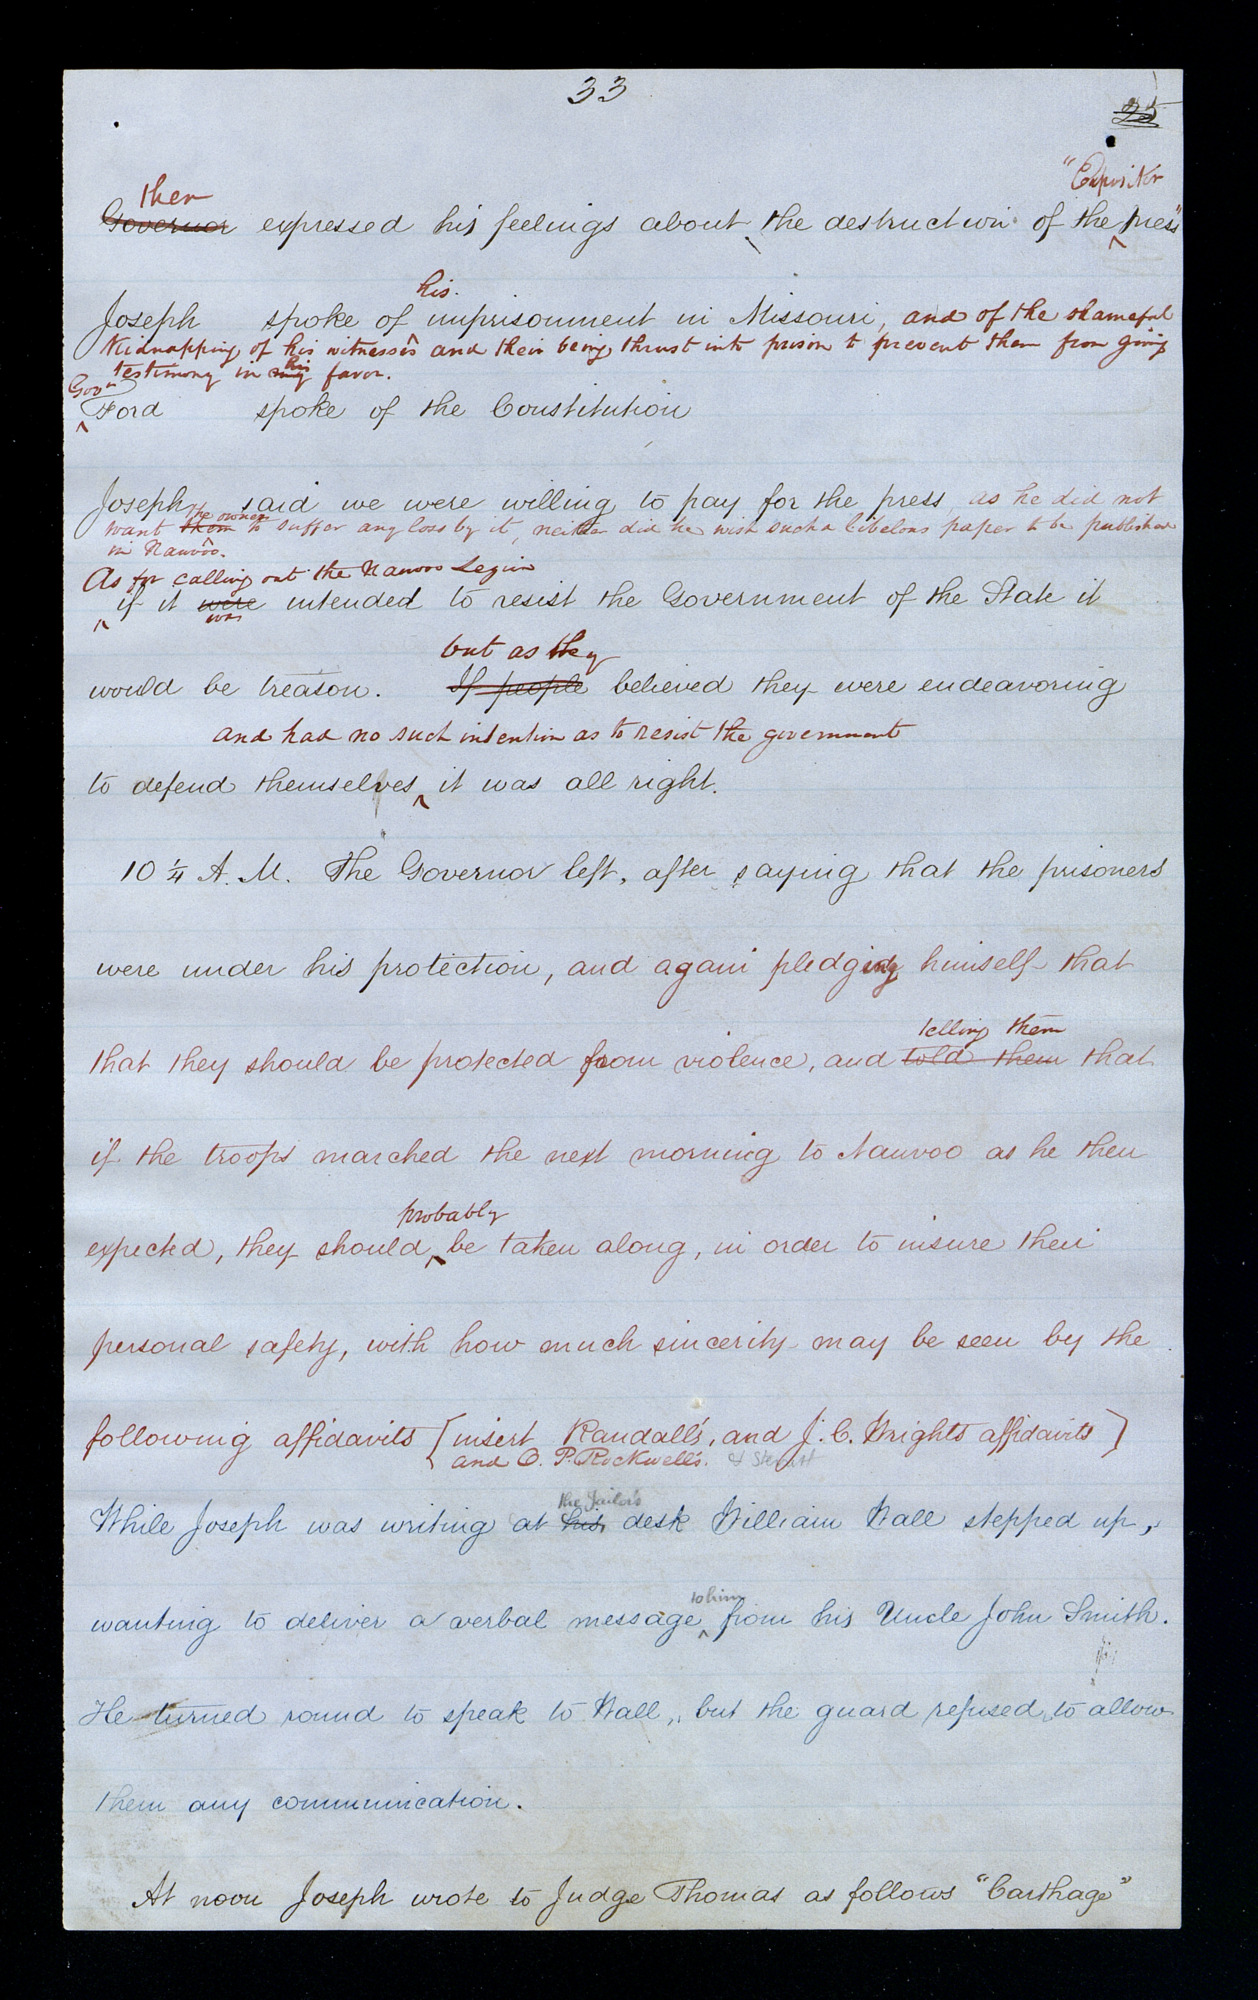 33
25
then "Expositor
Governor expressed his feelings about the destruction of the press"
his
Joseph spoke of imprisonment in Missouri, and of the shameful
kidnapping of his witnesses and their being thrust into prison to prevent them from giving
testimony in my his favor.
Govr
Ford spoke of the Constitution
Joseph said we were willing to pay for the press as he did not
want them the owners to suffer any loss by it, neither did he wish such a libelous paper to be published
in Nauvoo.
As for calling out the Nauvoo Legion
if it were intended to resist the Government of the State it
was
but as they
would be treason. If people believed they were endeavoring
and had no such intention as to resist the government
to defend themselves it was all right.
10 1/4 A. M. The Governor left, after saying that the prisoners
were under his protection, and again pledging himself that
telling them
that they should be protected from violence, and told them that
if the troops marched the next morning to Nauvoo as he then
probably
expected, they should be taken along, in order to insure their
personal safety, with how much sincerity may be seen by the
following affidavits [insert Randall's, and J. C. Wright's affidavits]
and O. P. Rockwell's. & Stewart
the Jailor's
While Joseph was writing at his desk William Wall stepped up,
to him
wanting to deliver a verbal message from his Uncle John Smith.
He turned round to speak to Wall, but the guard refused to allow
them any communication.
At noon Joseph wrote to Judge Thomas as follows "Carthage"